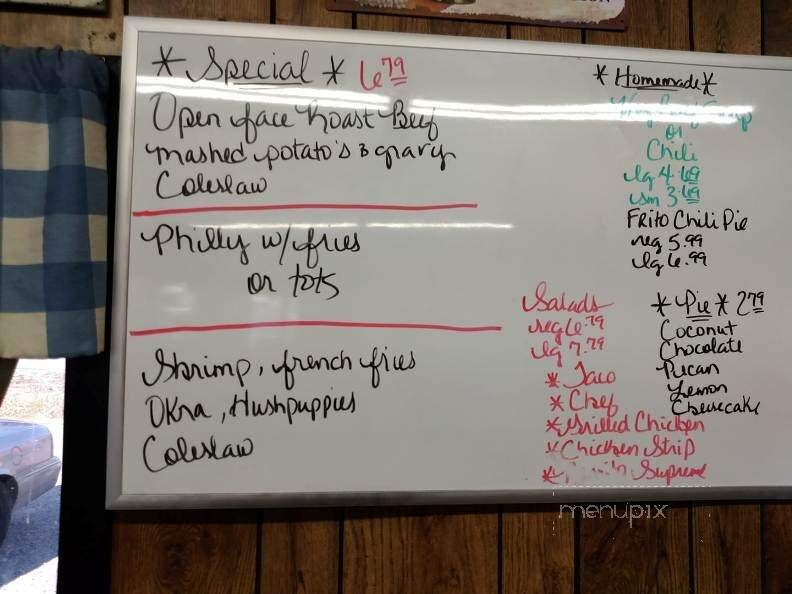 * Special * 6 79
Open face Roast Beef
mashed potato's & gravy
Coleslaw
Philly w/fries
or tots
Shrimp, french fries
Okra, Hushpuppies
Coleslaw
* Homemade *
or
Chili
lg 4.69
sm 3.69
Frito Chili Pie
reg 5.99
lg 6.99
Salads
reg 6.79
lg 7.79
* Taco
* Chef
* Grilled Chicken
* Chicken Strip
* Supreme
* Pie * 2 79
Coconut
Chocolate
Pecan
Lemon
Cheesecake
menupix